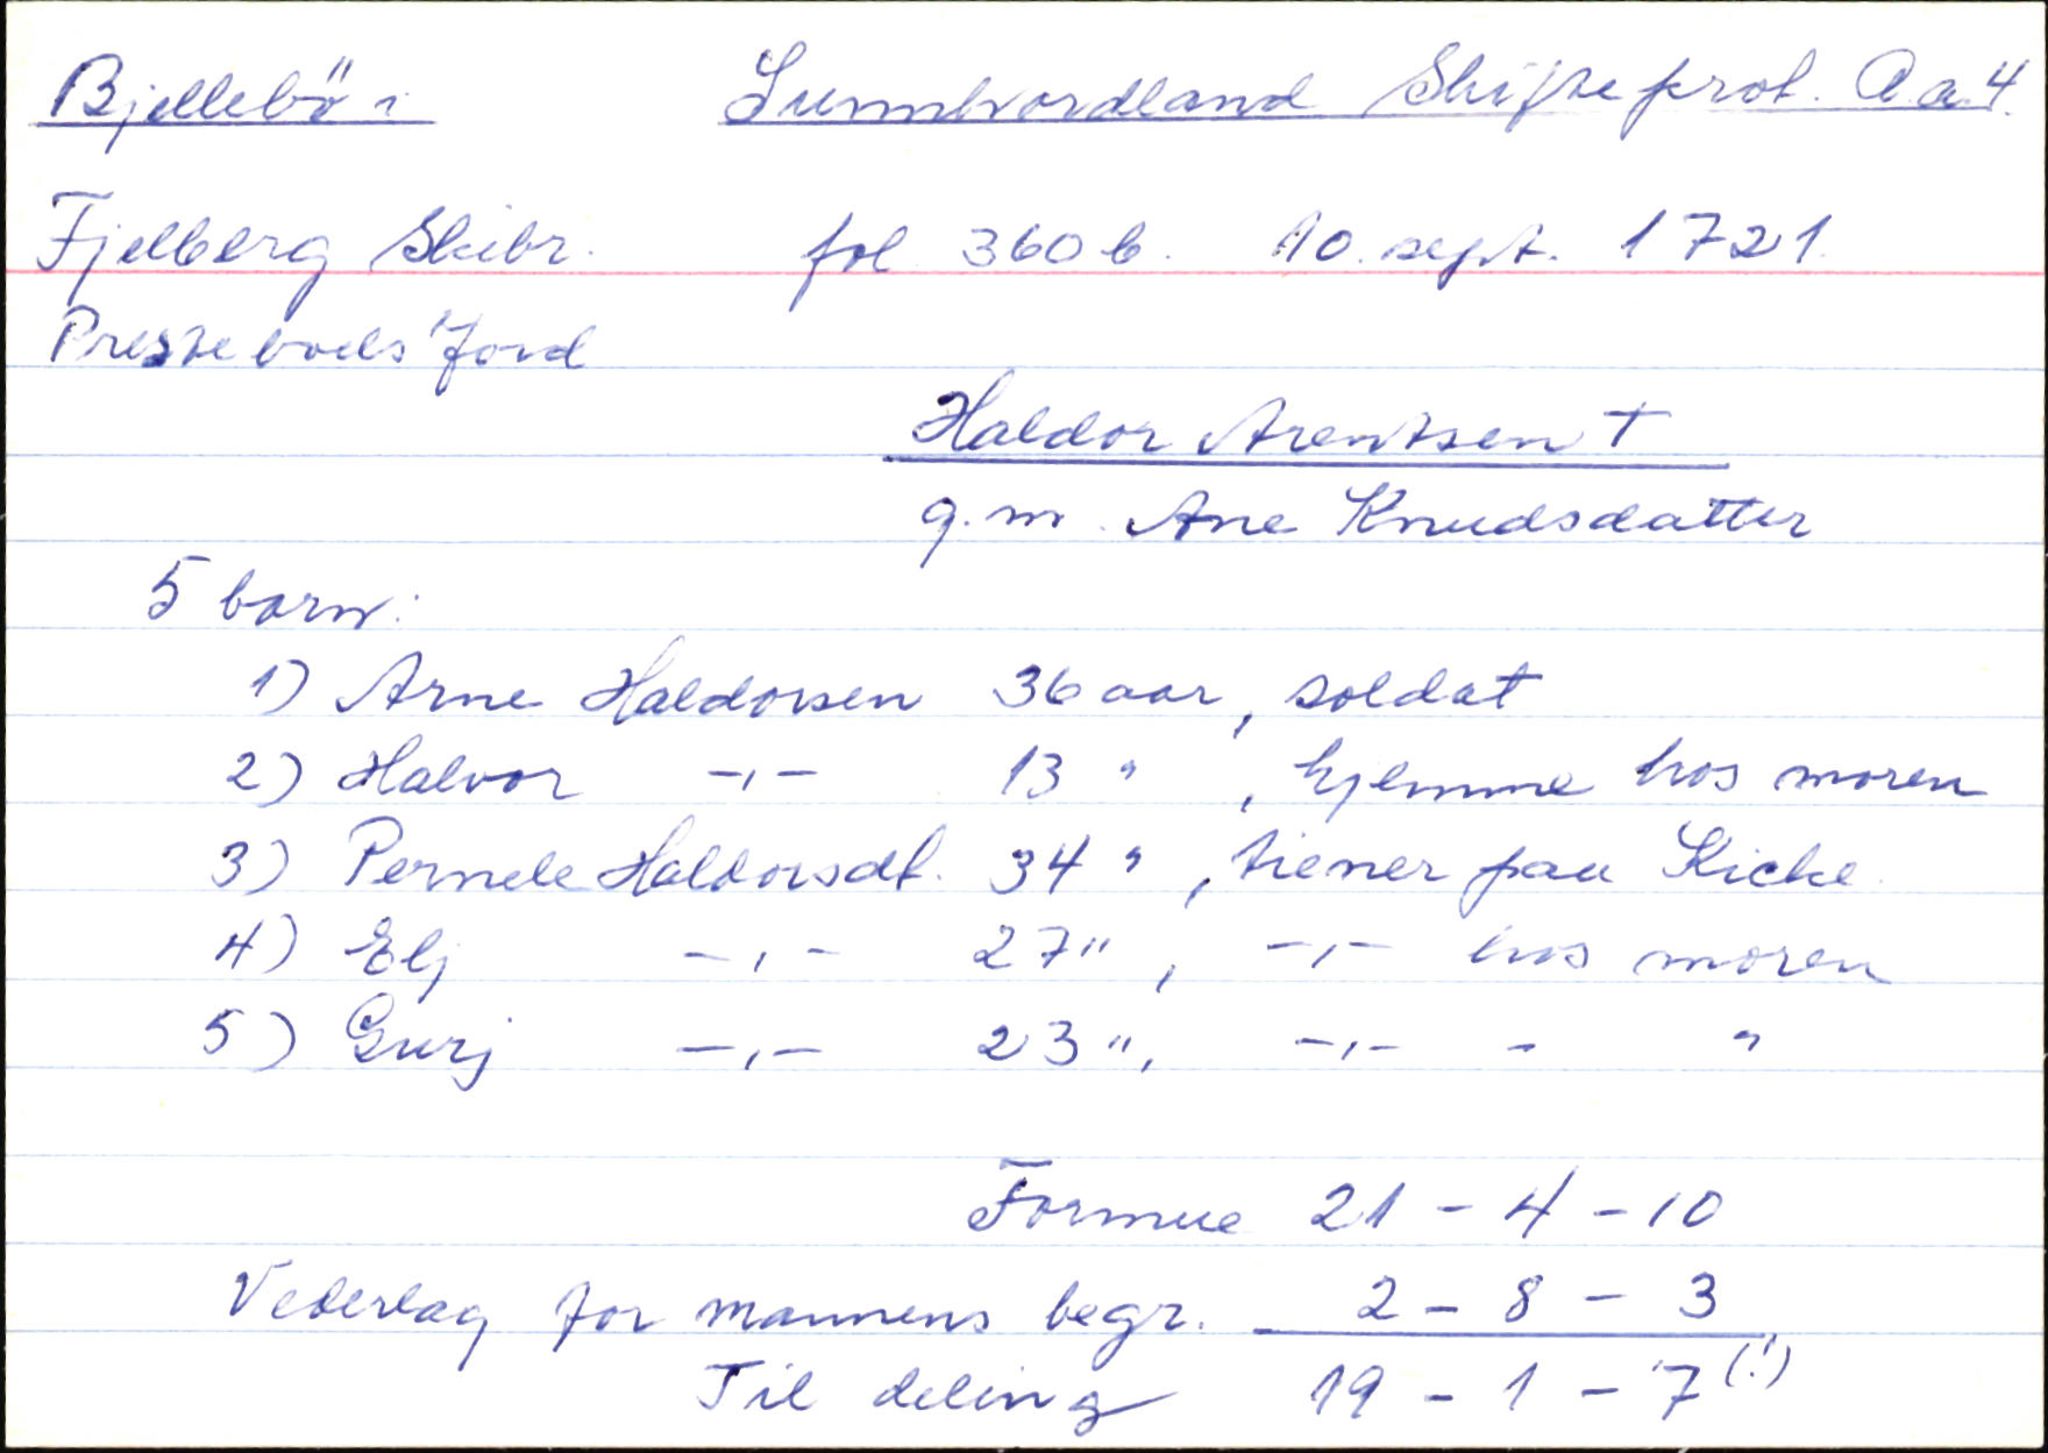 Bjellebö i Sunnhordland Skifteprot. A a 4.
Fjelberg Skibr. fol 360 b. 10. sept. 1721.
Presteboels Jord
Haldor Arentsen †
g. m. Ane Knudsdatter
5 barn:
1) Arne Haldorsen 36 aar, soldat
2) Halvor -,- 13 " , hjemme hos moren
3) Pernele Haldorsdt. 34 " , tiener paa Kicke
4) Elj -,- 27 " , -,- hos moren
5) Gurj -,- 23 " , -,- - "
Formue 21 - 4 - 10
Vederlag for mannens begr. 2 - 8 - 3
Til deling 19 - 1 - 7 (!)